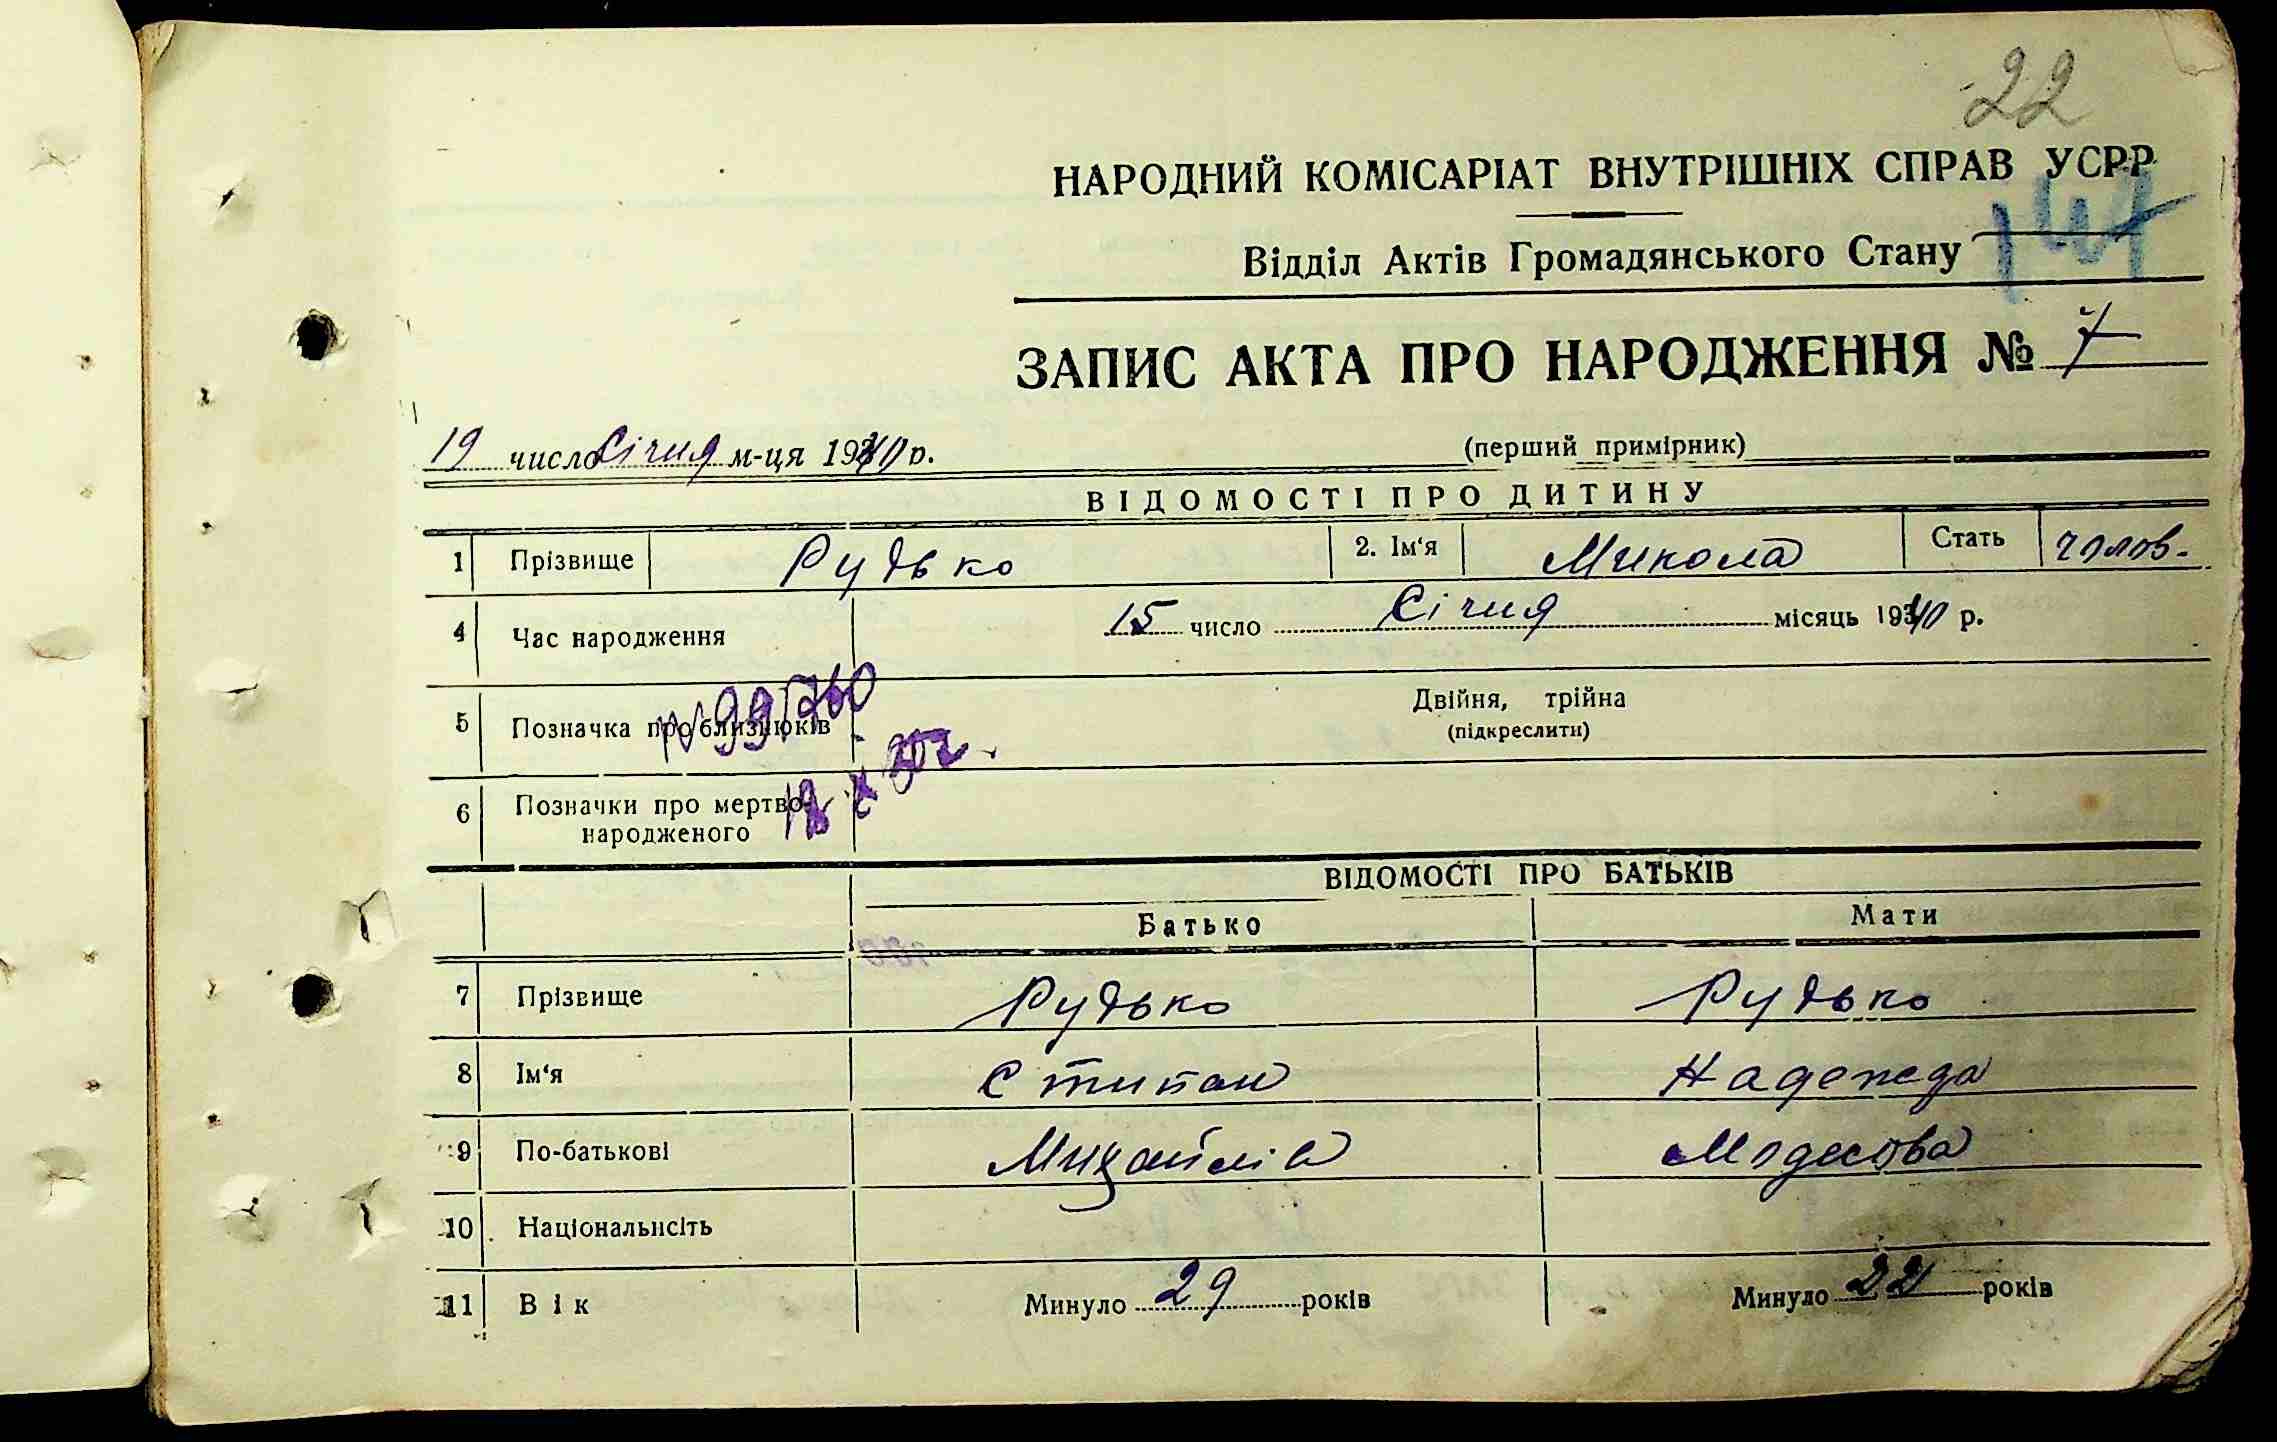 22
НАРОДНИЙ КОМІСАРІАТ ВНУТРІШНІХ СПРАВ УСРР
Відділ Актів Громадянського Стану
ЗАПИС АКТА ПРО НАРОДЖЕННЯ № 7
19 число Січня м-ця 1940 р. (перший примірник)
ВІДОМОСТІ ПРО ДИТИНУ
1 Прізвище Рудько 2. Ім'я Микола Стать чолов.
4 Час народження 15 число Січня місяць 1940 р.
5 Позначка про близнюків Двійня, трійна
(підкреслити)
6 Позначки про мертво-
народженого
ВІДОМОСТІ ПРО БАТЬКІВ
Батько Мати
7 Прізвище Рудько Рудько
8 Ім'я Стипан Надежда
9 По-батькові Михайлів
10 Національнсіть
11 Вік Минуло 29 років Минуло 22 років